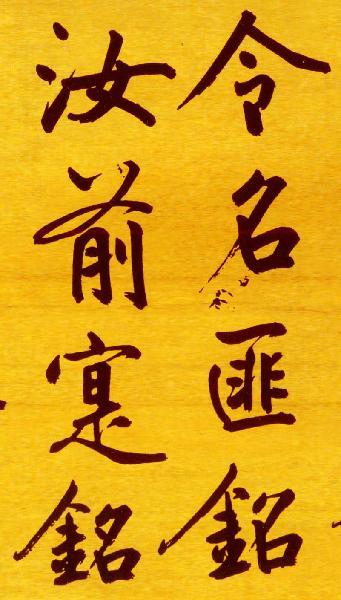 令名匪銘
汝前寔銘